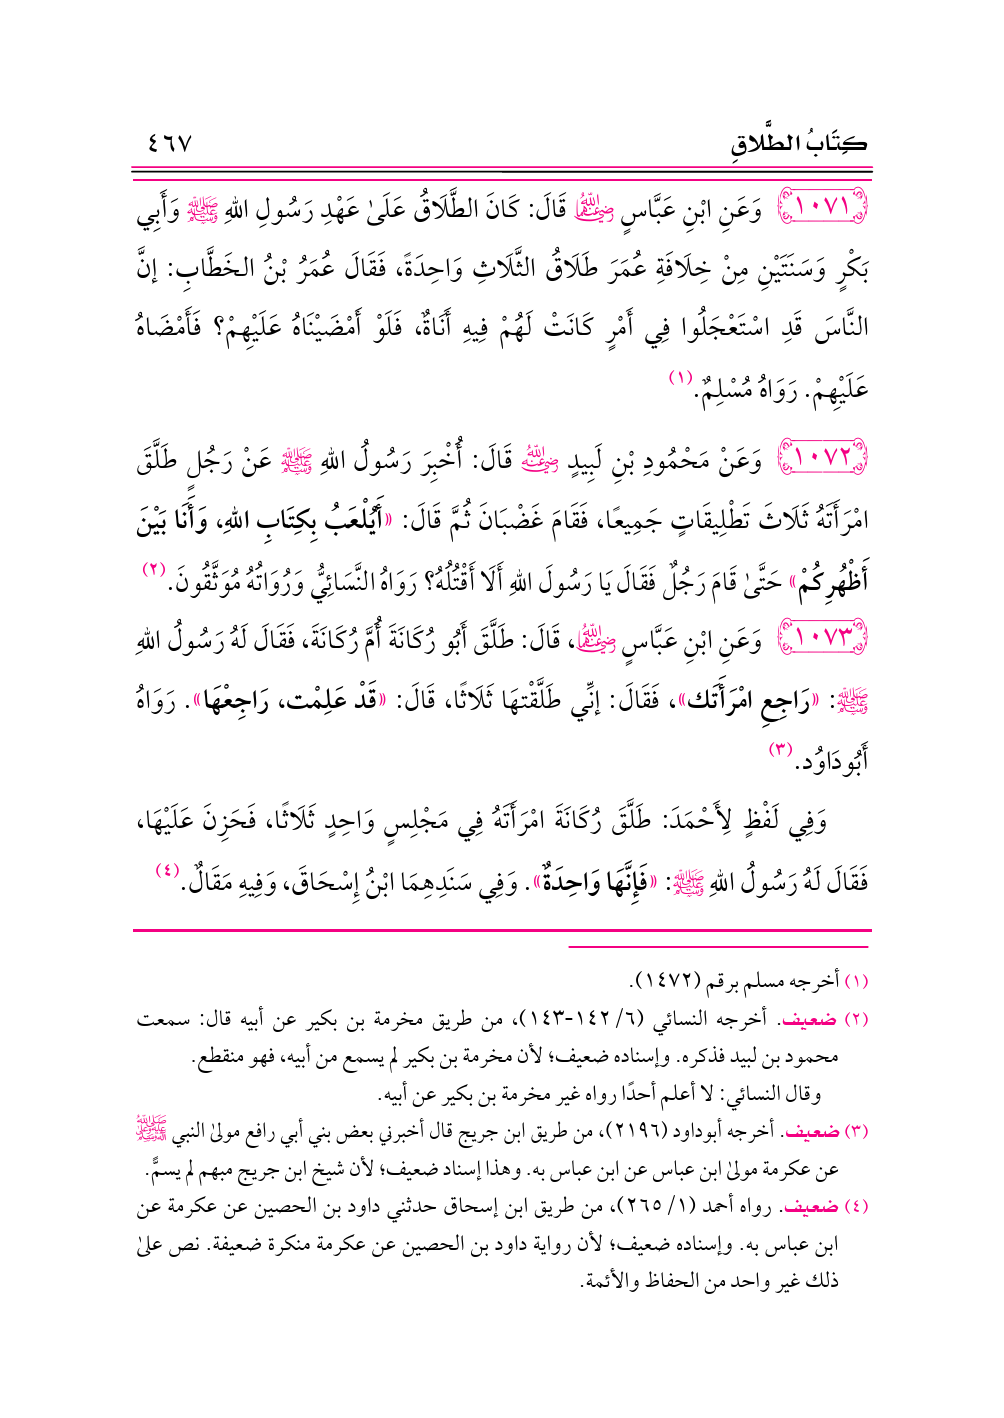 كِتَابُ الطَّلَاقِ ٤٦٧
١٠٧١ وَعَنِ ابْنِ عَبَّاسٍ ﵄ قَالَ: كَانَ الطَّلَاقُ عَلَىٰ عَهْدِ رَسُولِ اللهِ ﷺ وَأَبِي
بَكْرٍ وَسَنَتَيْنِ مِنْ خِلَافَةِ عُمَرَ طَلَاقُ الثَّلَاثِ وَاحِدَةً، فَقَالَ عُمَرُ بْنُ الخَطَّابِ: إنَّ
النَّاسَ قَدِ اسْتَعْجَلُوا فِي أَمْرٍ كَانَتْ لَهُمْ فِيهِ أَنَاةٌ، فَلَوْ أَمْضَيْنَاهُ عَلَيْهِمْ؟ فَأَمْضَاهُ
عَلَيْهِمْ. رَوَاهُ مُسْلِمٌ.(١)
١٠٧٢ وَعَنْ مَحْمُودِ بْنِ لَبِيدٍ ﵁ قَالَ: أُخْبِرَ رَسُولُ اللهِ ﷺ عَنْ رَجُلٍ طَلَّقَ
امْرَأَتَهُ ثَلَاثَ تَطْلِيقَاتٍ جَمِيعًا، فَقَامَ غَضْبَانَ ثُمَّ قَالَ: «أَيُلْعَبُ بِكِتَابِ اللهِ، وَأَنَا بَيْنَ
أَظْهُرِكُمْ» حَتَّىٰ قَامَ رَجُلٌ فَقَالَ يَا رَسُولَ اللهِ أَلَا أَقْتُلُهُ؟ رَوَاهُ النَّسَائِيُّ وَرُوَاتُهُ مُوَثَّقُونَ.(٢)
١٠٧٣ وَعَنِ ابْنِ عَبَّاسٍ ﵄، قَالَ: طَلَّقَ أَبُو رُكَانَةَ أُمَّ رُكَانَةَ، فَقَالَ لَهُ رَسُولُ اللهِ
ﷺ: «رَاجِعِ امْرَأَتَك»، فَقَالَ: إنِّي طَلَّقْتهَا ثَلَاثًا، قَالَ: «قَدْ عَلِمْت، رَاجِعْهَا». رَوَاهُ
أَبُودَاوُد.(٣)
وَفِي لَفْظٍ لِأَحْمَدَ: طَلَّقَ رُكَانَةَ امْرَأَتَهُ فِي مَجْلِسٍ وَاحِدٍ ثَلَاثًا، فَحَزِنَ عَلَيْهَا،
فَقَالَ لَهُ رَسُولُ اللهِ ﷺ: «فَإِنَّهَا وَاحِدَةٌ». وَفِي سَنَدِهِمَا ابْنُ إِسْحَاقَ، وَفِيهِ مَقَالٌ.(٤)
(١) أخرجه مسلم برقم (١٤٧٢).
(٢) ضعيف. أخرجه النسائي (٦/ ١٤٢-١٤٣)، من طريق مخرمة بن بكير عن أبيه قال: سمعت
محمود بن لبيد فذكره. وإسناده ضعيف؛ لأن مخرمة بن بكير لم يسمع من أبيه، فهو منقطع.
وقال النسائي: لا أعلم أحدًا رواه غير مخرمة بن بكير عن أبيه.
(٣) ضعيف. أخرجه أبوداود (٢١٩٦)، من طريق ابن جريج قال أخبرني بعض بني أبي رافع مولىٰ النبي ﷺ
عن عكرمة مولىٰ ابن عباس عن ابن عباس به. وهذا إسناد ضعيف؛ لأن شيخ ابن جريج مبهم لم يسمَّ.
(٤) ضعيف. رواه أحمد (١/ ٢٦٥)، من طريق ابن إسحاق حدثني داود بن الحصين عن عكرمة عن
ابن عباس به. وإسناده ضعيف؛ لأن رواية داود بن الحصين عن عكرمة منكرة ضعيفة. نص علىٰ
ذلك غير واحد من الحفاظ والأئمة.